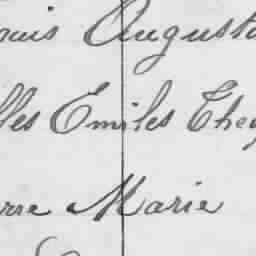 ouis Augusta
lles Emiles They
rre Marie